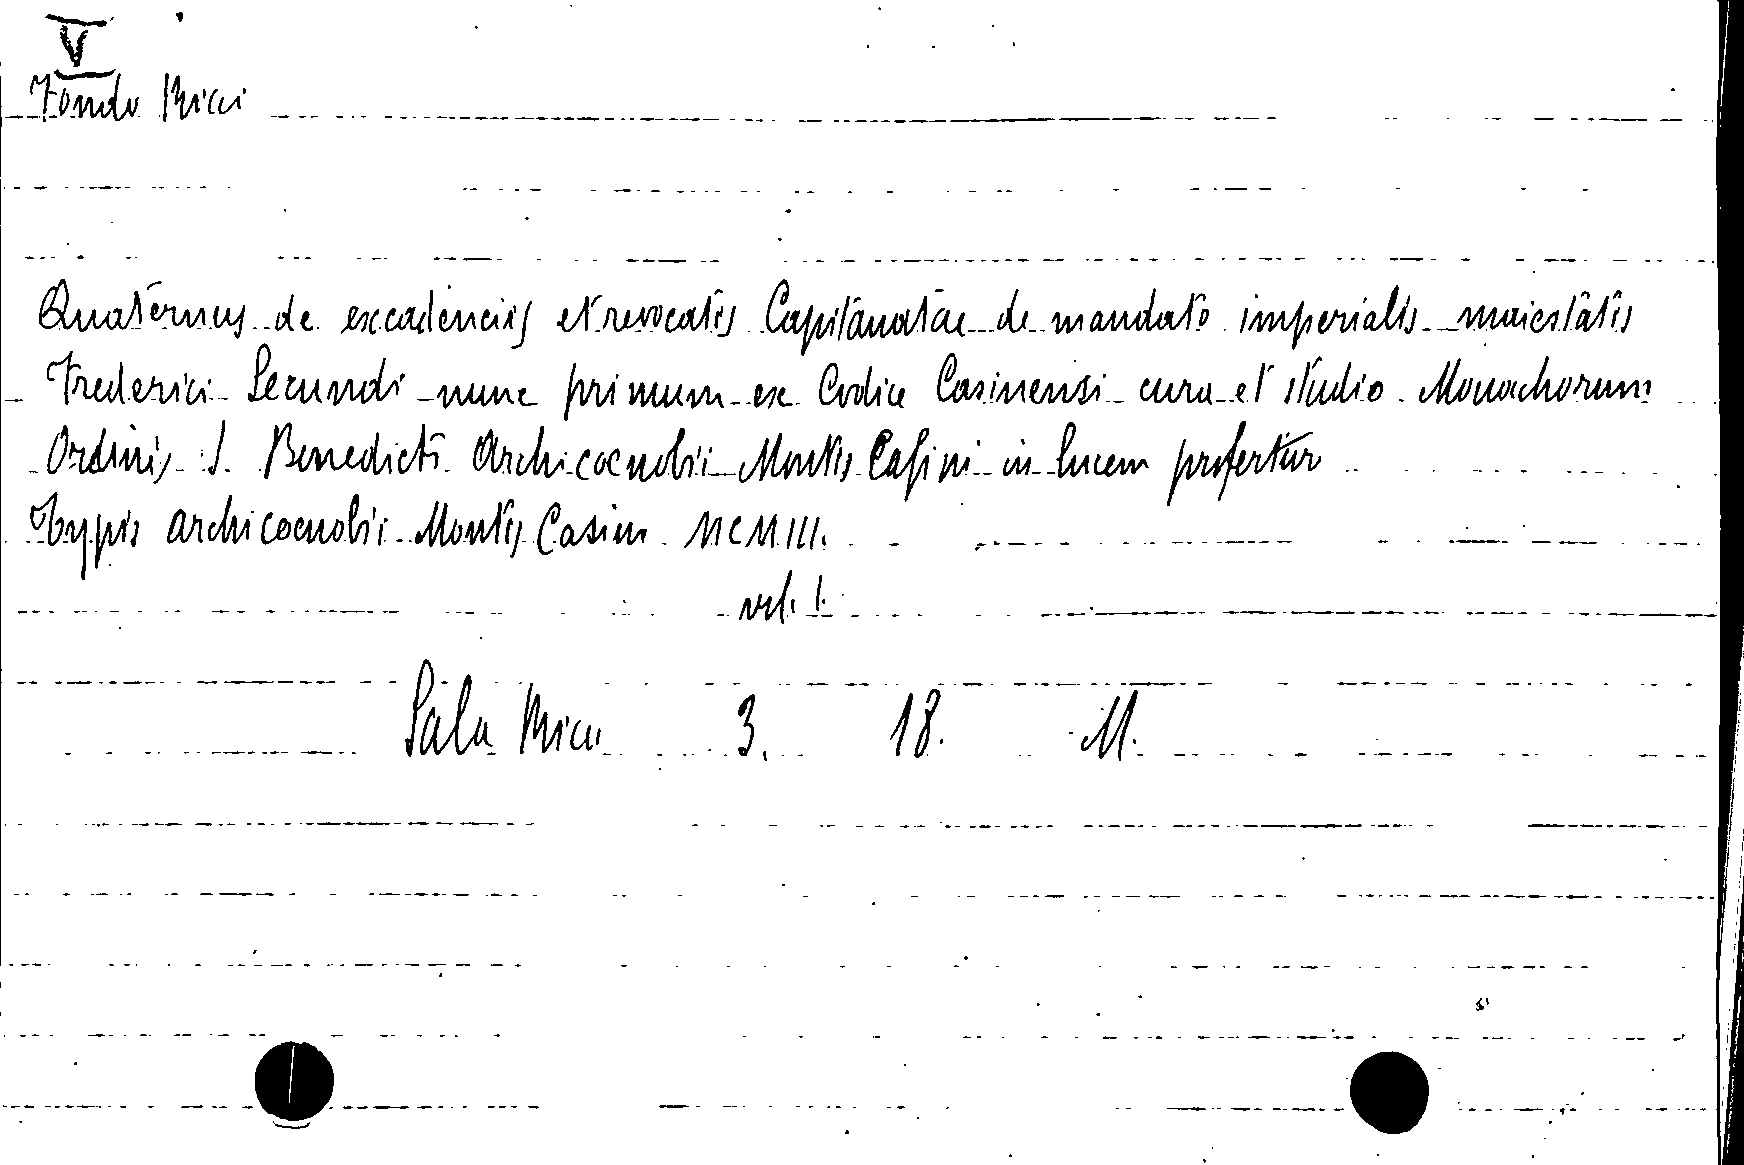 V
Fondo Ricci
Quaternus de excadenciis et revocatis Capitanatae de mandato imperialis maiestatis
Frederici Secundi nunc primum ex Codice Casinensi cura et studio Monachorum
Ordinis S. Benedicti Archicoenobii Montis Casini in lucem profertur
Typis archicoenobii Montis Casini MCMIII.
vol. 1.
Sala Ricci 3. 18. M.